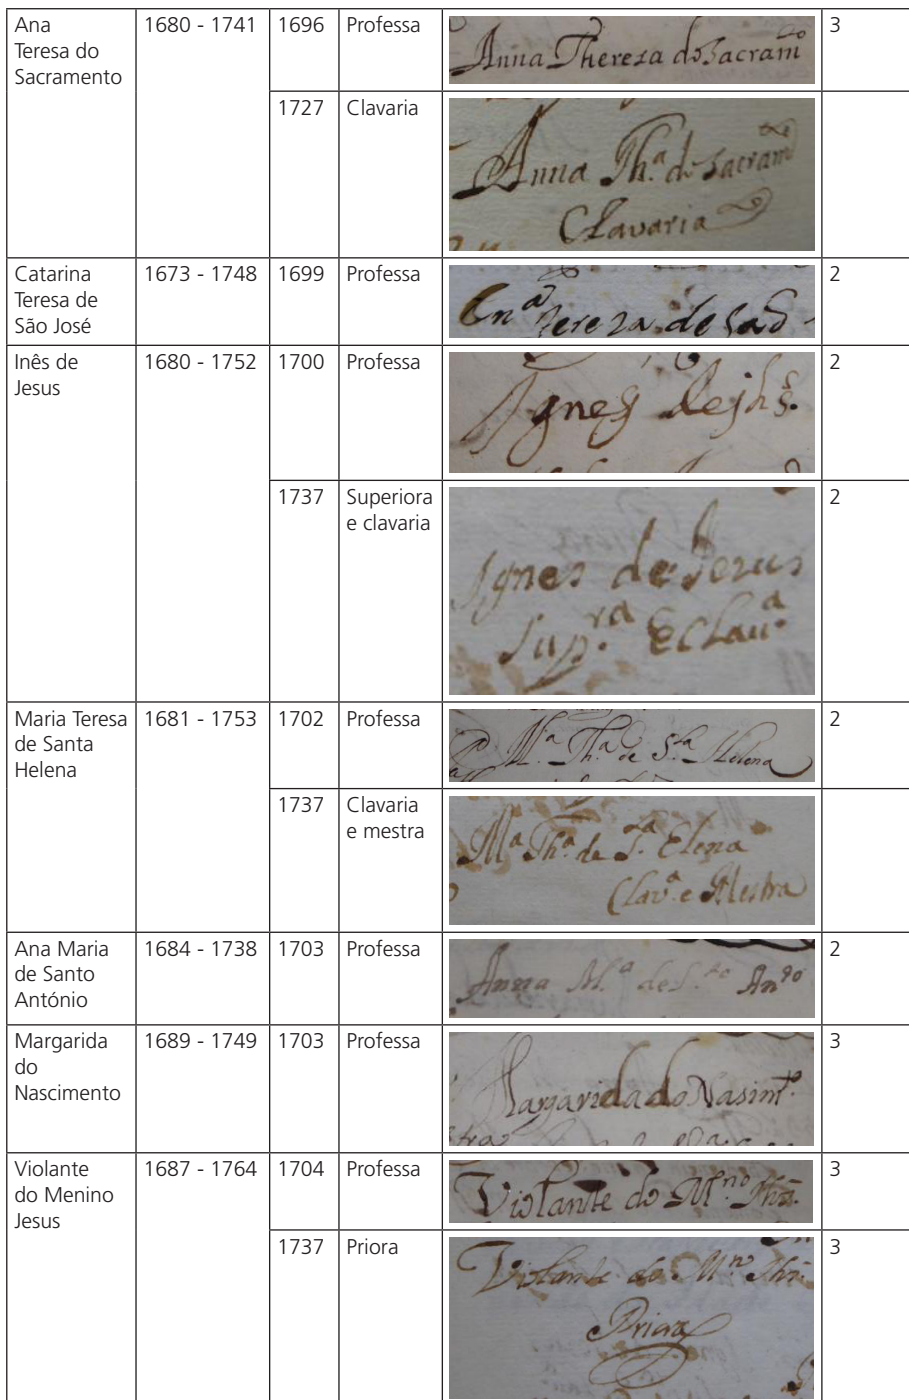 Ana Teresa do Sacramento
1680 - 1741
1696
Professa
Anna Thereza do Sacram.to
3
1727
Clavaria
Anna Th.a do Sacram.to
Clavaria
Catarina Teresa de São José
1673 - 1748
1699
Professa
Cn.a Tereza de
2
Inês de Jesus
1680 - 1752
1700
Professa
Ignes de jhs.
2
1737
Superiora e clavaria
Ignes de Jezus
Sup.ra E Clau.a
2
Maria Teresa de Santa Helena
1681 - 1753
1702
Professa
M.a Th.a de S.ta Helena
2
1737
Clavaria e mestra
M.a Th.a de S.ta Elena
Clav.a e Mestra
Ana Maria de Santo António
1684 - 1738
1703
Professa
Anna M.a de S.to An.to
2
Margarida do Nascimento
1689 - 1749
1703
Professa
Margarida do Nasim.to
3
Violante do Menino Jesus
1687 - 1764
1704
Professa
Violante do M.no Jhũ.
3
1737
Priora
Violante do M.no Jhũ
Priora
3